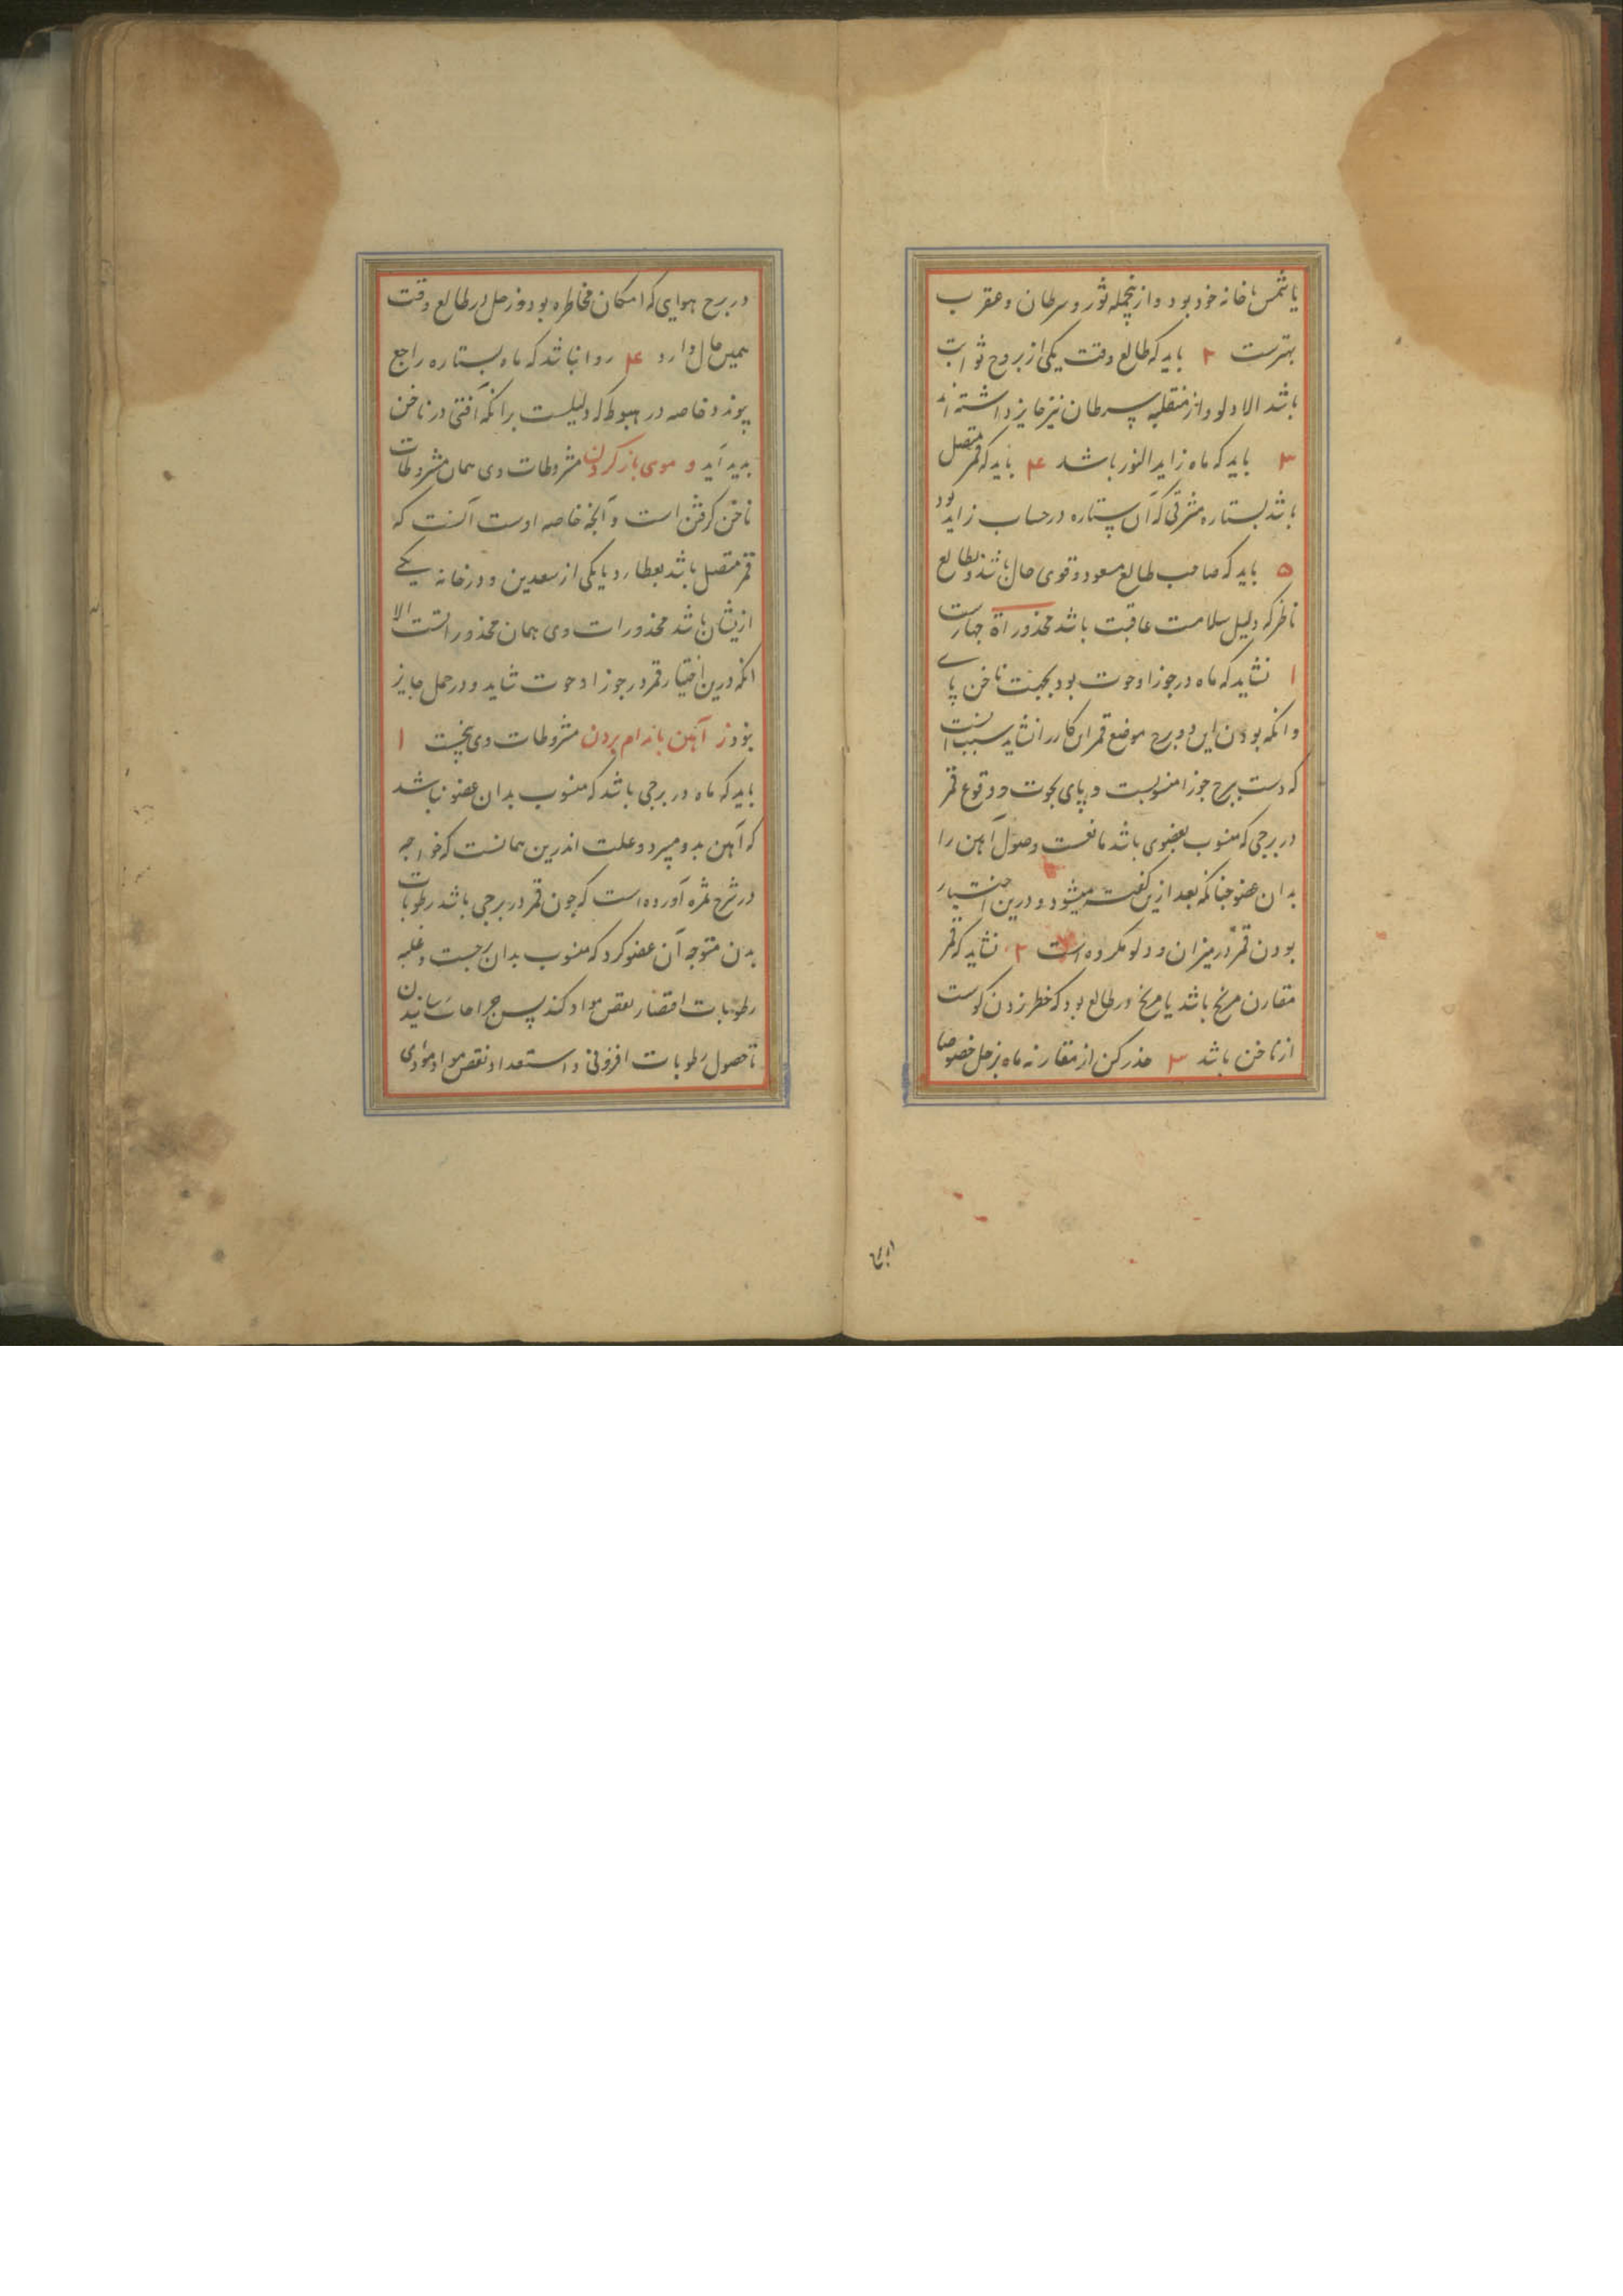 یا شمس یا خانه خود بود و ازینجمله ثور و سرطان و عقرب
بهترست ۲ باید که طالع وقت یکی از بروج ثوابت
باشد الا دلو و از منقلبه سرطان نیز جایز داشته‌اند
۳ باید که ماه زاید النور باشد ۴ باید که قمر متصل
باشد بستاره مشرقی که آن ستاره در حساب زاید بود
۵ باید که صاحب طالع مسعود و قوی حال باشد و بطالع
ناظر که دلیل سلامت عاقبت باشد محذوراة چهارست
۱ نشاید که ماه در جوزا و حوت بود بجهت ناخن پای
و انکه بودن این دو برج موضع قمر این کار را نشاید سبب آنست
که دست ببرج جوزا منسوبست و پای بحوت و وقوع قمر
در برجی که منسوب بعضوی باشد مانعست وصول آهن را
بدان عضو چنانکه بعد ازین گفته میشود و درین اختیار
بودن قمر در میزان و دلو مکروه است ۲ نشاید که قمر
مقارن مریخ باشد یا مریخ در طالع بود که خطر زدن گوشت
از ناخن باشد ۳ حذر کن از مقارنه ماه بزحل خصوصا
در برج هوایی که امکان مخاطره بود و زحل در طالع وقت
همین حال دارد ۴ روا نباشد که ماه بستاره راجع
پیوندد خاصه در هبوط که دلیلست برانکه آفتی در ناخن
پدید آید و موی باز کردن مشروطات وی همان مشروطات
ناخن گرفتن است و آنچه خاصه اوست آنست که
قمر متصل باشد بعطارد یا یکی از سعدین و در خانه یکی
ازیشان باشد محذورات وی همان محذوراتست الا
انکه درین اختیار قمر در جوزا و حوت شاید و در حمل جایز
بود ز آهن باندام بردن مشروطات وی پنجست ۱
باید که ماه در برجی باشد که منسوب بدان عضو نباشد
که آهن بدو میبرد و علت اندرین همانست که خواجه
در شرح ثمره آورده است که چون قمر در برجی باشد رطوبات
بدن متوجه آن عضو گردد که منسوب بدان برجست و غلبه
رطوبات اقتضاء نقص مواد کند پس جراحات رسانیدن
تا حصول رطوبات افزونی و استعداد نقص مواد مودی